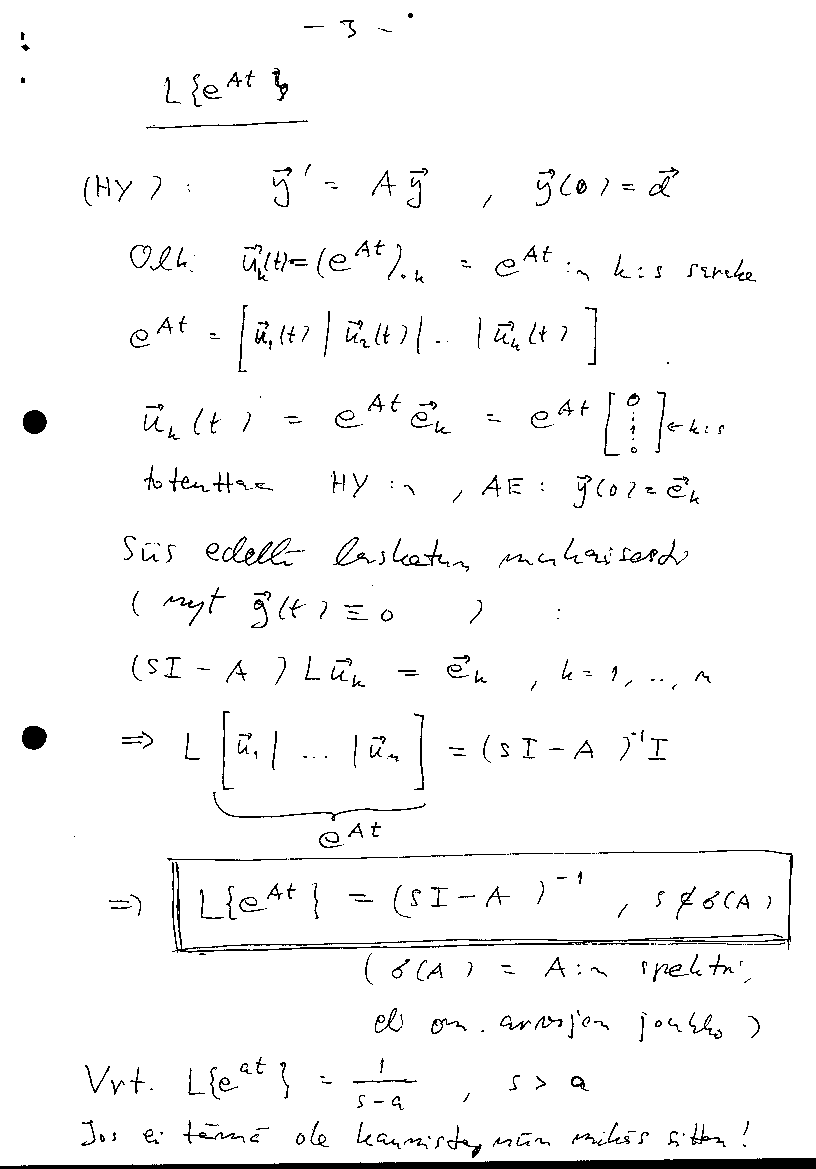 - 3 -
L{e^{At}}
(HY): \vec{y}' = A\vec{y} , \vec{y}(0) = \vec{d}
Olk. \vec{u}_k(t) = (e^{At})_{.k} = e^{At}:n k:s sarake
e^{At} = [\vec{u}_1(t) | \vec{u}_2(t) | .. | \vec{u}_n(t)]
\vec{u}_k(t) = e^{At} \vec{e}_k = e^{At} [0 ⋮ 1 ⋮ 0] ← k:s
toteuttaa HY:n , AE: \vec{y}(0) = \vec{e}_k
Siis edellä lasketun mukaisesti
(nyt \vec{g}(t) ≡ 0 ) :
(sI - A) L\vec{u}_k = \vec{e}_k , k = 1, .., n
⇒ L [\vec{u}_1 | ... | \vec{u}_n] = (sI - A)^{-1} I
e^{At}
⇒ L{e^{At}} = (sI - A)^{-1} , s ∉ σ(A)
(σ(A) = A:n spektri,
eli om. arvojen joukko)
Vrt. L{e^{at}} = \frac{1}{s-a} , s > a
Jos ei tämä ole kaunista, niin mikäs sitten!